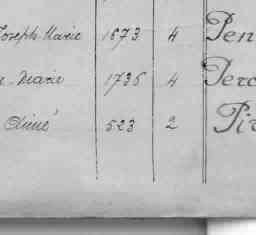 Joseph Marie 1673 4 Pen
e Marie 1736 4 Perc
Aimé 523 2 Pir